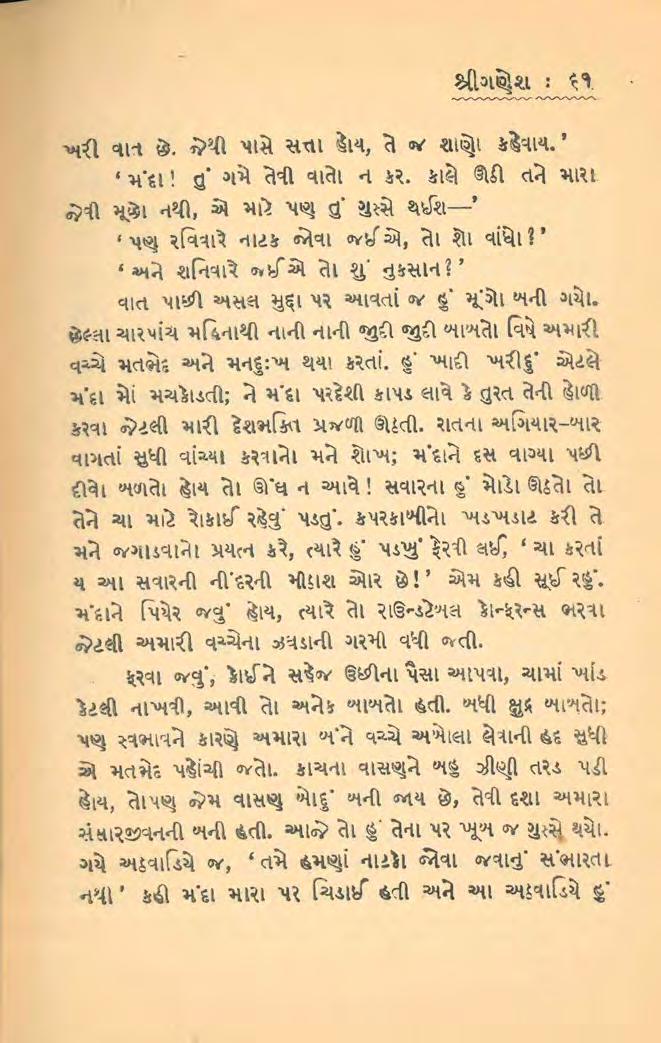 શ્રીગણેશ : ૬૧
ખરી વાત છે. જેથી પાસે સત્તા હોય, તે જ શાણો કહેવાય.’
‘મંદા! તું ગમે તેવી વાતો ન કર. કાલે ઊઠી તને મારા
જેવી મૂછો નથી, એ માટે પણ તું ગુસ્સે થઈશ—’
‘પણ રવિવારે નાટક જોવા જઈએ, તો શો વાંધો?’
‘અને શનિવારે જઈએ તો શું નુકસાન?’
વાત પાછી અસલ મુદ્દા પર આવતાં જ હું મૂંગો બની ગયો.
છેલ્લા ચારપાંચ મહિનાથી નાની નાની જુદી જુદી બાબતો વિષે અમારી
વચ્ચે મતભેદ અને મનદુઃખ થયા કરતાં. હું ખાદી ખરીદું એટલે
મંદા મોં મચકોડતી; ને મંદા પરદેશી કાપડ લાવે કે તુરત તેની હોળી
કરવા જેટલી મારી દેશભક્તિ પ્રજળી ઊઠતી. રાતના અગિયાર–બાર
વાગતાં સુધી વાંચ્યા કરવાનો મને શોખ; મંદાને દસ વાગ્યા પછી
દીવો બળતો હોય તો ઊંઘ ન આવે! સવારના હું મોડો ઊઠતો તો
તેને ચા માટે રોકાઈ રહેવું પડતું. કપરકાબીનો ખડખડાટ કરી તે
મને જગાડવાનો પ્રયત્ન કરે, ત્યારે હું પડખું ફેરવી લઈ, ‘ચા કરતાં
ય આ સવારની નીંદરની મીઠાશ ઓર છે!’ એમ કહી સૂઈ રહું.
મંદાને પિયેર જવું હોય, ત્યારે તો રાઉન્ડટેબલ કોન્ફરન્સ ભરવા
જેટલી અમારી વચ્ચેના ઝઘડાની ગરમી વધી જતી.
ફરવા જવું, કોઈને સહેજ ઉછીના પૈસા આપવા, ચામાં ખાંડ
કેટલી નાખવી, આવી તો અનેક બાબતો હતી. બધી ક્ષુદ્ર બાબતો;
પણ સ્વભાવને કારણે અમારા બંને વચ્ચે અબોલા લેવાની હદ સુધી
એ મતભેદ પહોંચી જતો. કાચના વાસણને બહુ ઝીણી તરડ પડી
હોય, તોપણ જેમ વાસણ બોદું બની જાય છે, તેવી દશા અમારા
સંસારજીવનની બની હતી. આજે તો હું તેના પર ખૂબ જ ગુસ્સે થયો.
ગયે અઠવાડિયે જ, ‘તમે હમણાં નાટકો જોવા જવાનું સંભારતા
નથી’ કહી મંદા મારા પર ચિડાઈ હતી અને આ અઠવાડિયે હું